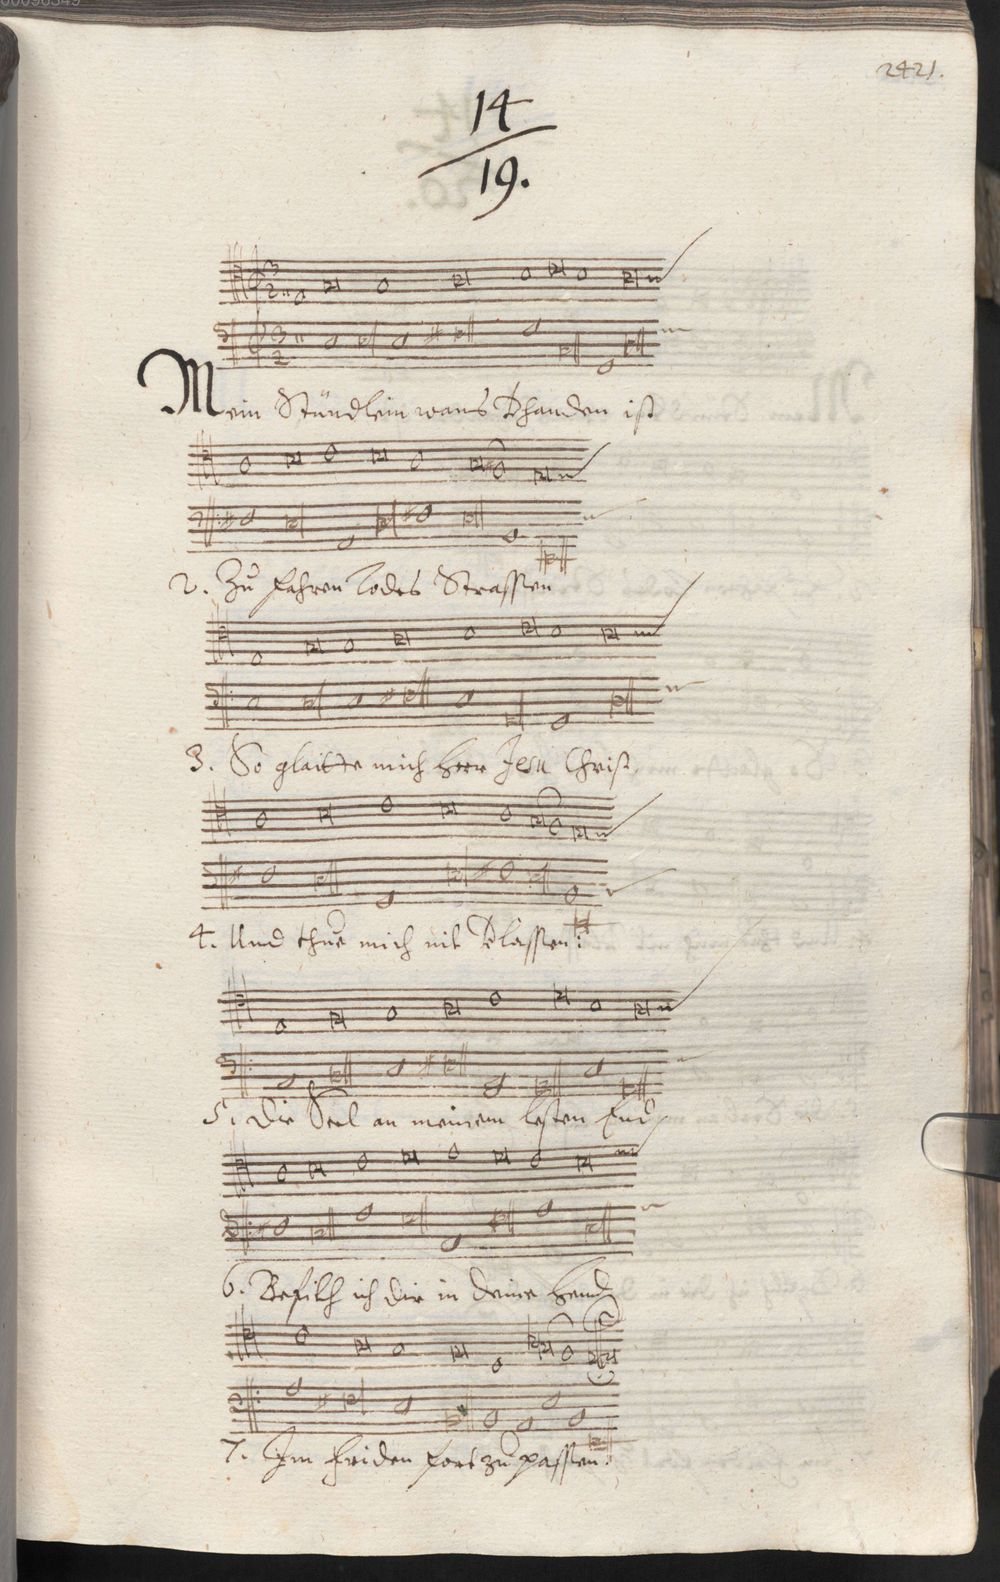 00096349
2421.
14
19.
Mein Stündlein wans Vhanden ist
2. Zu fahren Todes Strassen
3. So glaitte mich Herr Jesu Christ
4. Und thue mich nit Vlassen:
5. Die Seel an meinem lesten End
6. Befilh ich dir in deine Hend
7. Im friden fort zu passen: